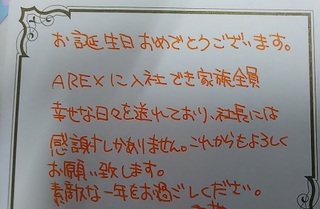 お誕生日おめでとうございます。
AREXに入社でき家族全員
幸せな日々を送れており、社長には
感謝しかありません。これからもよろしく
お願い致します。
素敵な一年をお過ごしください。